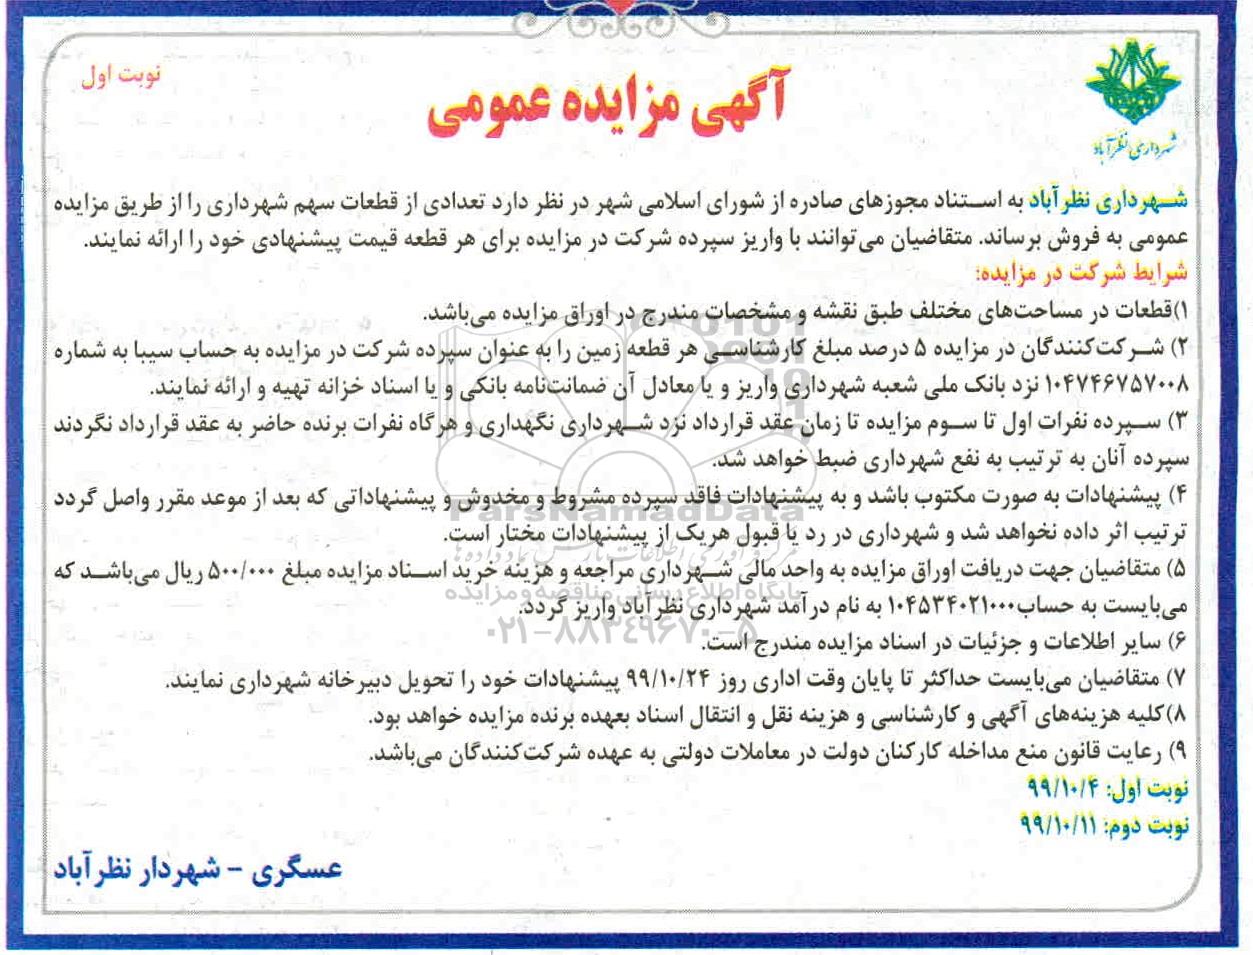 نوبت اول
آگهی مزایده عمومی
شهرداری نظرآباد
شـهرداری نظرآباد به اسـتناد مجوزهای صادره از شورای اسلامی شهر در نظر دارد تعدادی از قطعات سهم شهرداری را از طریق مزایده
عمومی به فروش برساند. متقاضیان می‌توانند با واریز سپرده شرکت در مزایده برای هر قطعه قیمت پیشنهادی خود را ارائه نمایند.
شرایط شرکت در مزایده:
۱)قطعات در مساحت‌های مختلف طبق نقشه و مشخصات مندرج در اوراق مزایده می‌باشد.
۲) شـرکت‌کنندگان در مزایده ۵ درصد مبلغ کارشناسـی هر قطعه زمین را به عنوان سپرده شرکت در مزایده به حساب سیبا به شماره
۱۰۴۷۴۶۷۵۷۰۰۸ نزد بانک ملی شعبه شهرداری واریز و یا معادل آن ضمانت‌نامه بانکی و یا اسناد خزانه تهیه و ارائه نمایند.
۳) سـپرده نفرات اول تا سـوم مزایده تا زمان عقد قرارداد نزد شـهرداری نگهداری و هرگاه نفرات برنده حاضر به عقد قرارداد نگردند
سپرده آنان به ترتیب به نفع شهرداری ضبط خواهد شد.
۴) پیشنهادات به صورت مکتوب باشد و به پیشنهادات فاقد سپرده مشروط و مخدوش و پیشنهاداتی که بعد از موعد مقرر واصل گردد
ترتیب اثر داده نخواهد شد و شهرداری در رد یا قبول هریک از پیشنهادات مختار است.
۵) متقاضیان جهت دریافت اوراق مزایده به واحد مالی شـهرداری مراجعه و هزینه خرید اسـناد مزایده مبلغ ۵۰۰/۰۰۰ ریال می‌باشـد که
می‌بایست به حساب۱۰۴۵۳۴۰۲۱۰۰۰ به نام درآمد شهرداری نظرآباد واریز گردد.
۶) سایر اطلاعات و جزئیات در اسناد مزایده مندرج است.
۷) متقاضیان می‌بایست حداکثر تا پایان وقت اداری روز ۹۹/۱۰/۲۴ پیشنهادات خود را تحویل دبیرخانه شهرداری نمایند.
۸)کلیه هزینه‌های آگهی و کارشناسی و هزینه نقل و انتقال اسناد بعهده برنده مزایده خواهد بود.
۹) رعایت قانون منع مداخله کارکنان دولت در معاملات دولتی به عهده شرکت‌کنندگان می‌باشد.
نوبت اول: ۹۹/۱۰/۴
نوبت دوم: ۹۹/۱۰/۱۱
عسگری - شهردار نظرآباد
ParsNamadData
پایگاه اطلاع رسانی مناقصه و مزایده
۰۲۱-۸۸۳۴۹۶۷۰-۵